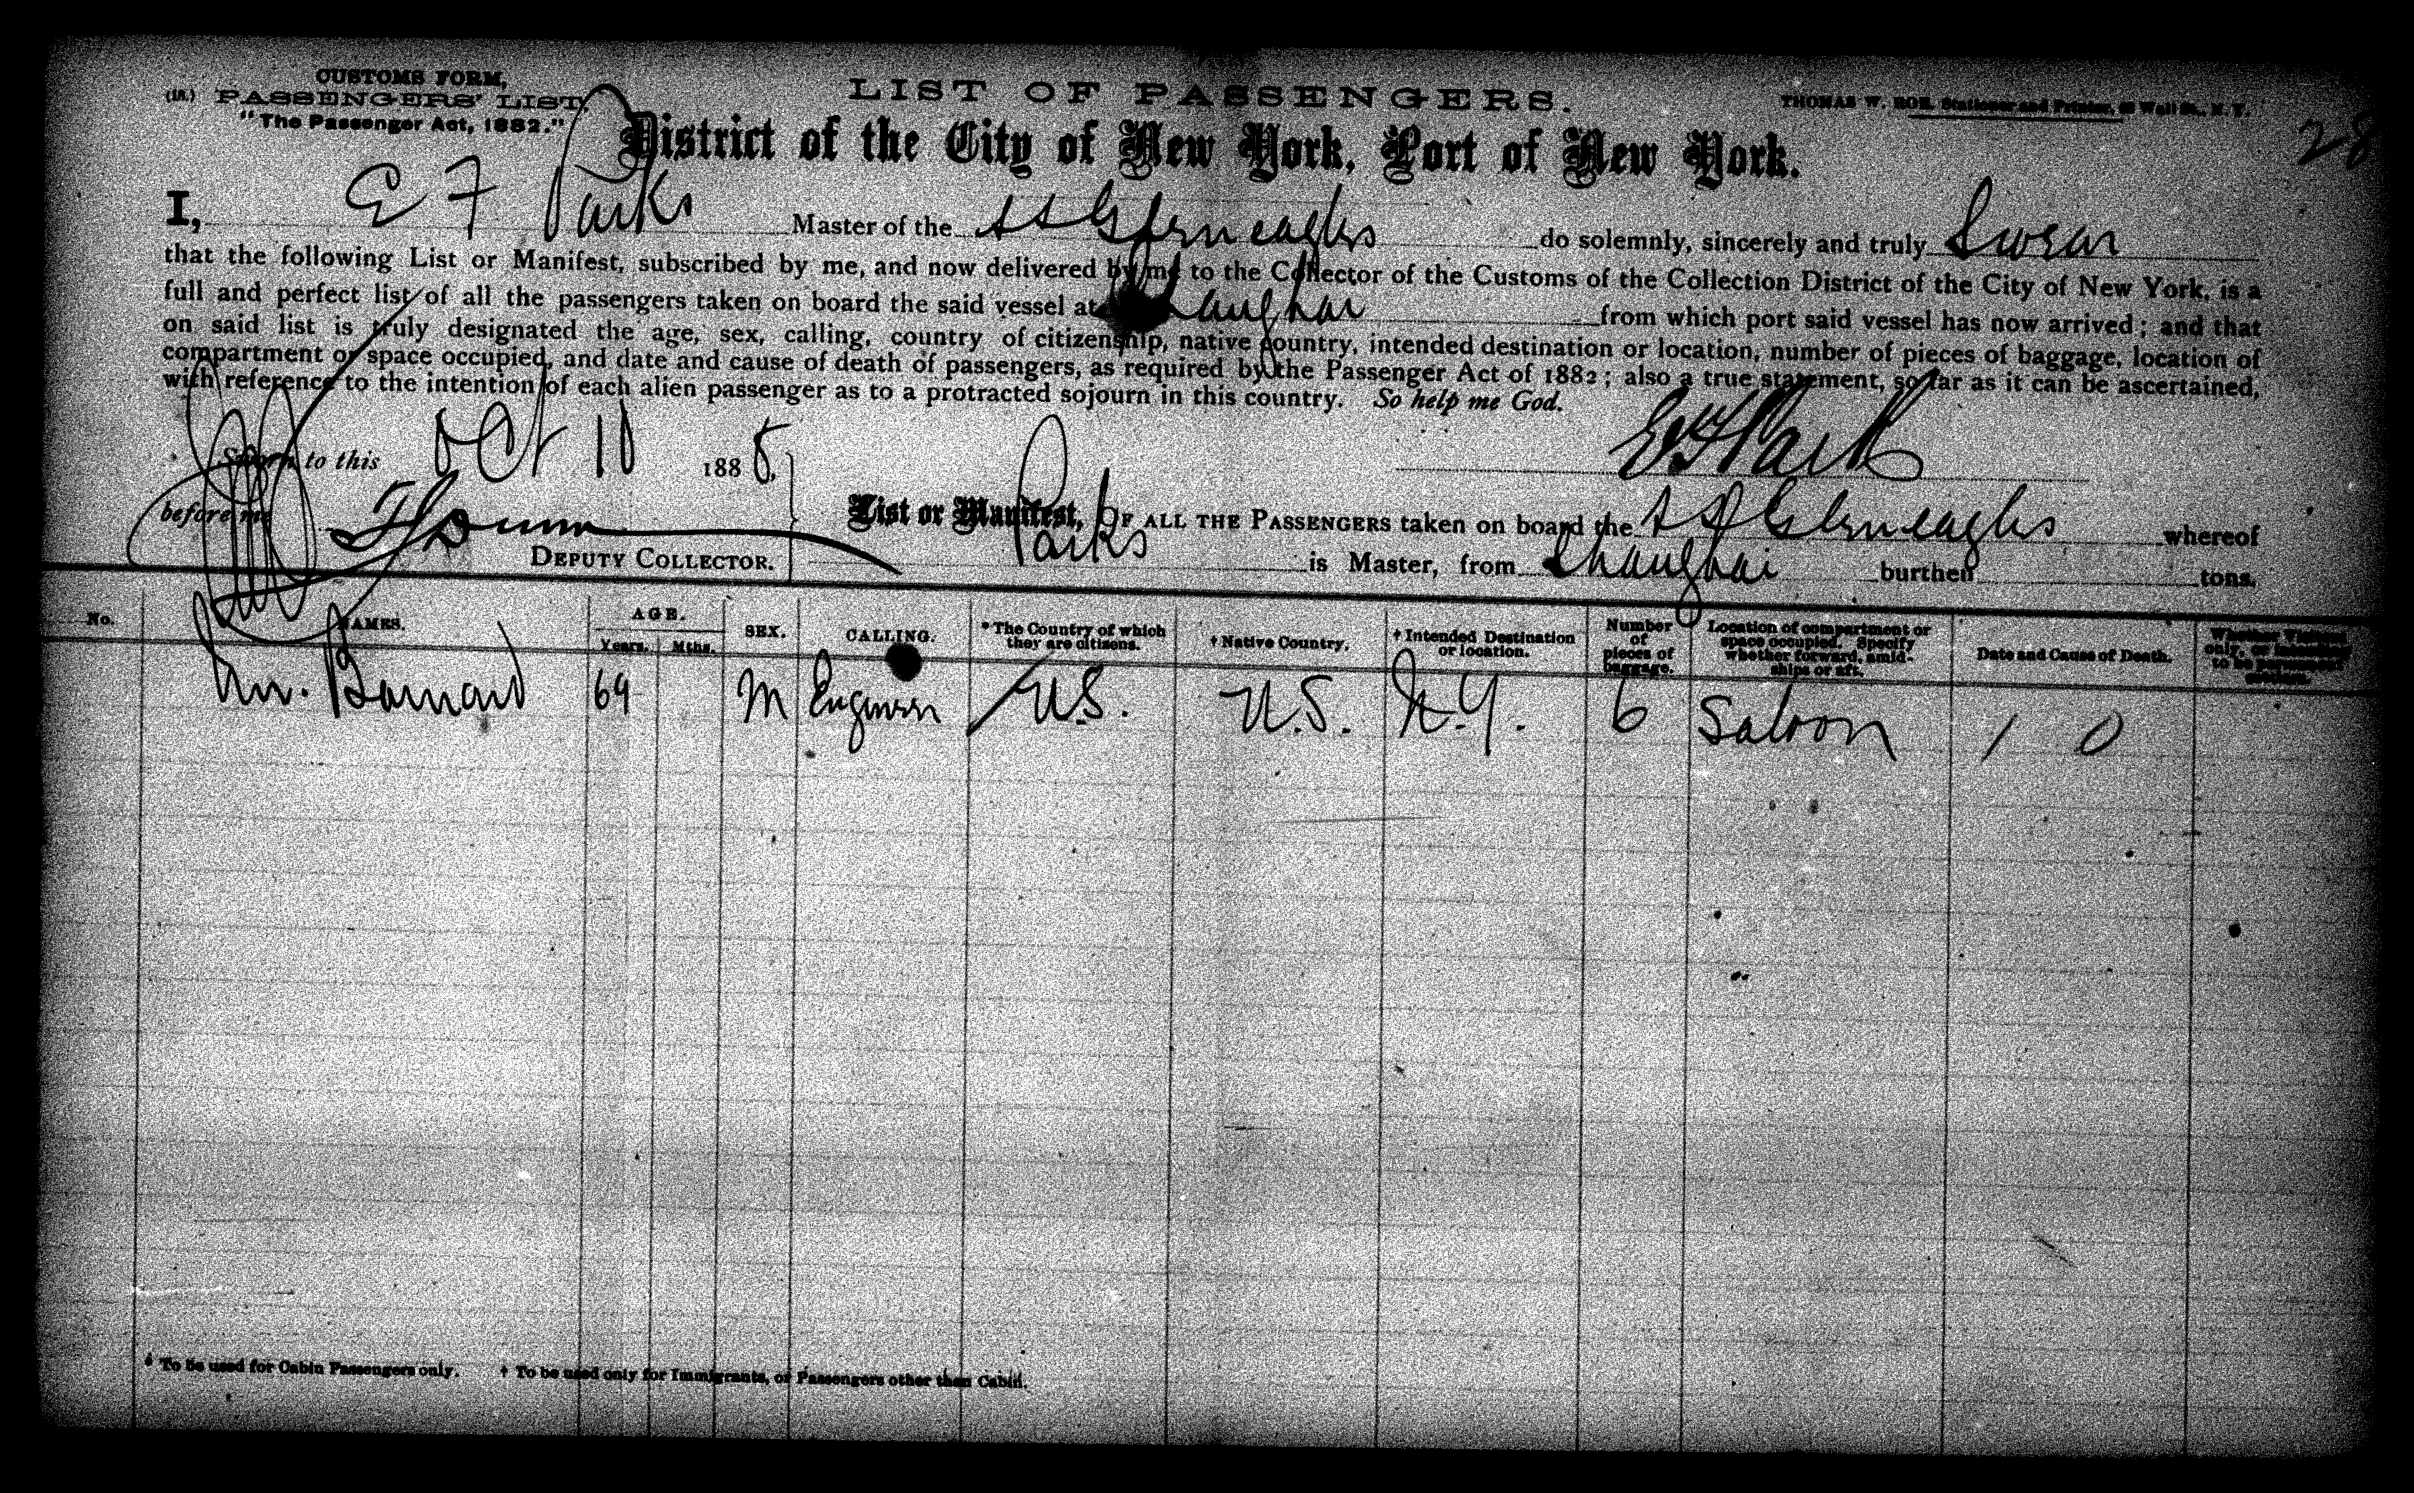 CUSTOMS FORM,
PASSENGERS' LIST,
"The Passenger Act, 1882."
LIST OF PASSENGERS.
THOMAS W. Stationer and Printer, Wall St., N.Y.
28
District of the City of New York, Port of New York.
I, E F Parks Master of the SS Gleneagles do solemnly, sincerely and truly Swear
that the following List or Manifest, subscribed by me, and now delivered by me to the Collector of the Customs of the Collection District of the City of New York, is a
full and perfect list of all the passengers taken on board the said vessel at Shanghai from which port said vessel has now arrived; and that
on said list is truly designated the age, sex, calling, country of citizenship, native country, intended destination or location, number of pieces of baggage, location of
compartment or space occupied, and date and cause of death of passengers, as required by the Passenger Act of 1882; also a true statement, so far as it can be ascertained,
with reference to the intention of each alien passenger as to a protracted sojourn in this country. So help me God.
Sworn to this Oct 10 1888, E F Parks
before me
DEPUTY COLLECTOR.
List or Manifest, OF ALL THE PASSENGERS taken on board the SS Gleneagles whereof
Parks is Master, from Shanghai burthen tons.
No. NAMES. AGE. Years. Mths. SEX. CALLING. *The Country of which they are citizens. †Native Country. †Intended Destination or location. Number of pieces of baggage. Location of compartment or space occupied. Specify whether forward, amidships or aft. Date and Cause of Death.
Mr. Barnard 69 M Engineer U.S. U.S. N.Y. 6 Saloon / 0
* To be used for Cabin Passengers only. † To be used only for Immigrants, or Passengers other than Cabin.